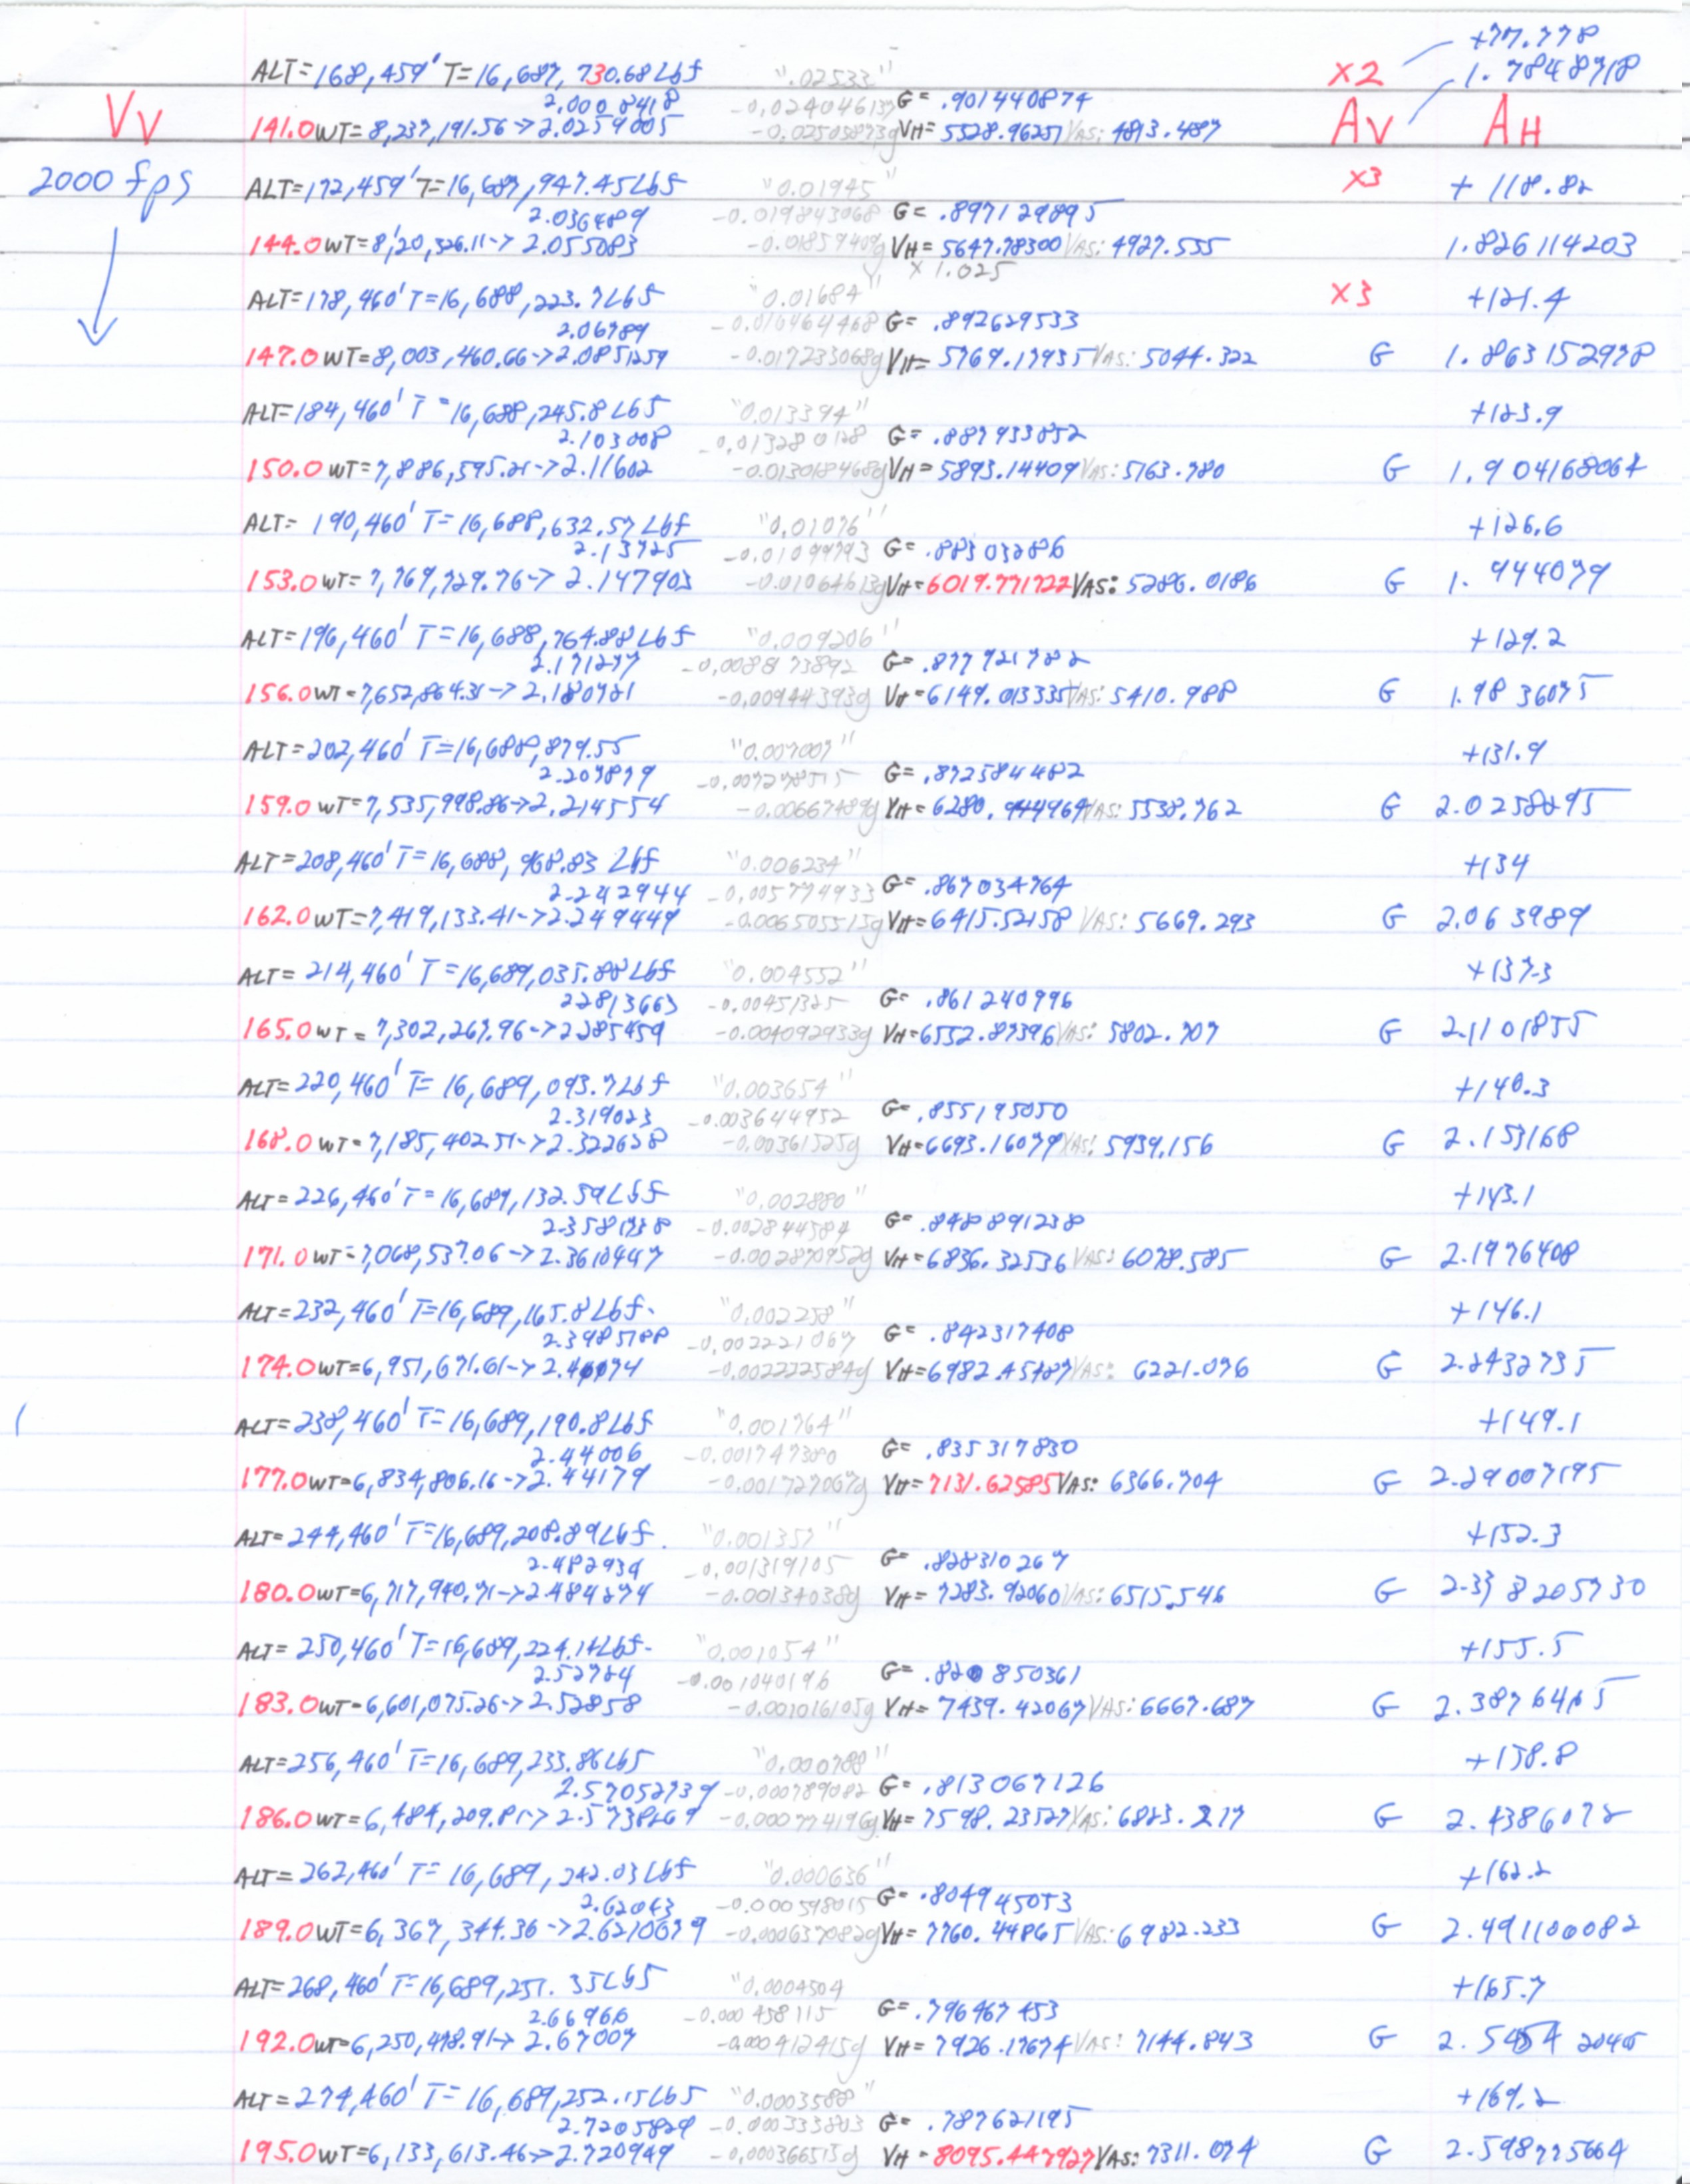 +77.778
ALT=168,459' T=16,687,730.68 Lbf ".02533" X2 1.7848718
2.0008418 -0.02404613g G= .901440874
Vv 141.0 WT=8,237,191.56->2.0259005 -0.02505873g VH= 5528.96251 VAS: 4813.487 Av AH
2000 fps ALT=172,459' T=16,687,947.45 Lbf "0.01945" X3 + 118.82
2.036489 -0.019843068 G= .897129895
144.0 WT=8,120,326.11-> 2.055083 -0.01859409g VH= 5647.78300 VAS: 4927.555 1.826114203
X 1.025
ALT=178,460' T=16,688,223.7 Lbf "0.01684" X3 +121.4
2.06789 -0.016464468 G= .892629533
147.0 WT=8,003,460.66->2.0851259 -0.017233068g VH= 5769.17935 VAS: 5044.322 G 1.863152978
ALT=184,460' T=16,688,245.8 Lbf "0.013394" +123.9
2.103008 -0.013280128 G= .887933852
150.0 WT=7,886,595.21->2.11602 -0.013018468g VH= 5893.14409 VAS: 5163.780 G 1.904168064
ALT= 190,460' T=16,688,632.57 Lbf "0.01076" +126.6
2.13725 -0.01099793 G= .883032886
153.0 WT= 7,769,729.76-> 2.147903 -0.01064613g VH=6019.771722 VAS: 5286.0186 G 1.944079
ALT=196,460' T=16,688,764.88 Lbf "0.009206" +129.2
2.171277 -0.008873892 G= .877921782
156.0 WT=7,652,864.31-> 2.180721 -0.00944393g VH=6149.013335 VAS: 5410.988 G 1.9836075
ALT=202,460' T=16,688,879.55 "0.007007" +131.9
2.207879 -0.007278515 G= .872584482
159.0 WT=7,535,998.86->2.214554 -0.00667489g VH= 6280.944964 VAS: 5538.762 G 2.0258295
ALT=208,460' T=16,688,968.83 Lbf "0.006234" +134
2.242944 -0.005774933 G= .867034764
162.0 WT=7,419,133.41->2.249449 -0.006505515g VH=6415.52158 VAS: 5669.293 G 2.063989
ALT= 214,460' T=16,689,035.88 Lbf "0.004552" +137.3
2.2813663 -0.00451325 G= .861240996
165.0 WT= 7,302,267.96->2.285459 -0.004092933g VH=6552.87396 VAS: 5802.707 G 2.1101855
ALT=220,460' T= 16,689,093.7 Lbf "0.003654" +140.3
2.319023 -0.003644952 G= .855195050
168.0 WT=7,185,402.51->2.322628 -0.00361525g VH=6693.16079 VAS: 5939.156 G 2.153168
ALT=226,460' T=16,689,132.59 Lbf "0.002880" +143.1
2.3581738 -0.002844584 G= .848891238
171.0 WT=7,068,537.06->2.3610447 -0.002870952g VH=6836.32536 VAS: 6078.585 G 2.1976408
ALT=232,460' T=16,689,165.8 Lbf. "0.002258" +146.1
2.3985188 -0.002221067 G= .842317408
174.0 WT=6,951,671.61->2.40074 -0.002222584g VH=6982.45487 VAS: 6221.076 G 2.2432735
ALT=238,460' T=16,689,190.8 Lbf "0.001764" +149.1
2.44006 -0.001747380 G= .835317830
177.0 WT=6,834,806.16->2.44179 -0.001727067g VH=7131.62585 VAS: 6366.704 G 2.29007195
ALT=244,460' T=16,689,208.89 Lbf. "0.001357" +152.3
2.482934 -0.001319105 G= .828310267
180.0 WT=6,717,940.71->2.484274 -0.00134038g VH= 7283.92060 VAS: 6515.546 G 2.338205730
ALT= 250,460' T=16,689,224.14 Lbf. "0.001054" +155.5
2.52784 -0.001040196 G= .820850361
183.0 WT=6,601,075.26->2.52858 -0.001016105g VH= 7439.42067 VAS: 6667.687 G 2.3876415
ALT=256,460' T=16,689,233.86 Lbf "0.000780" +158.8
2.57052739 -0.000789082 G= .813067126
186.0 WT=6,484,209.81->2.5738269 -0.000774196g VH=7598.23527 VAS: 6823.217 G 2.4386072
ALT=262,460' T= 16,689,242.03 Lbf "0.000636" +162.2
2.62043 -0.000598015 G= .804945053
189.0 WT=6,367,344.36->2.6210679 -0.000637082g VH= 7760.44865 VAS: 6982.233 G 2.491100082
ALT=268,460' T=16,689,251.35 Lbf "0.0004504 +165.7
2.66966 -0.000458115 G= .796467453
192.0 WT=6,250,478.91-> 2.67007 -0.000412415g VH= 7926.17674 VAS: 7144.843 G 2.5454 2040
ALT=274,460' T= 16,689,252.15 Lbf "0.0003580" +169.2
2.7205829 -0.000333803 G= .787621195
195.0 WT=6,133,613.46->2.720949 -0.000366515g VH= 8095.447927 VAS: 7311.074 G 2.598775664